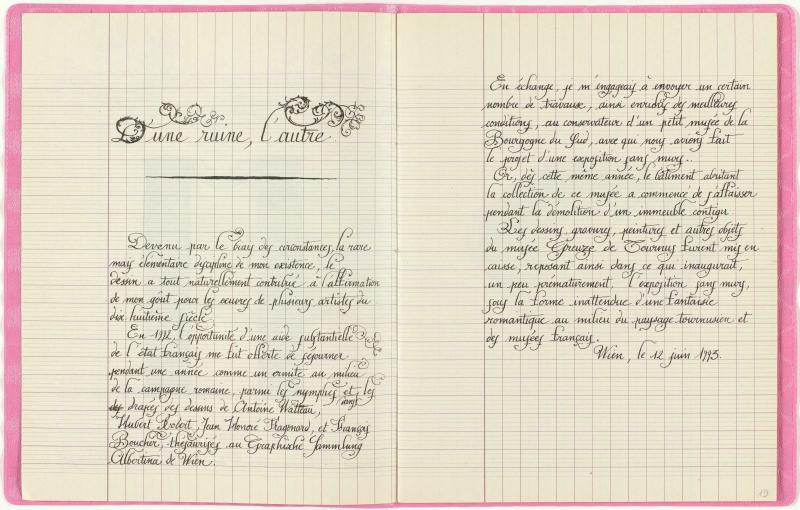 D'une ruine, l'autre
Devenu par le biais des circonstances, la rare
mais élémentaire discipline de mon existence, le
dessin a tout naturellement contribué à l'affirmation
de mon goût pour les œuvres de plusieurs artistes du
dix huitième siècle.
En 1992, l'opportunité d'une aide substantielle
de l'état français me fut offerte de séjourner
pendant une année comme un ermite au milieu
de la campagne romaine, parmi les nymphes et les
dans
drapés des dessins de Antoine Watteau,
Hubert Robert, Jean Honoré Fragonard, et François
Boucher, thésaurisés au Graphische Sammlung
Albertina de Wien.
En échange, je m'engageais à envoyer un certain
nombre de travaux, ainsi enrichis des meilleures
conditions, au conservateur d'un petit musée de la
Bourgogne du Sud, avec qui nous avions fait
le projet d'une exposition sans murs.
Or, dès cette même année, le bâtiment abritant
la collection de ce musée a commencé de s'affaisser
pendant la démolition d'un immeuble contigu.
Les dessins, gravures, peintures et autres objets
du musée Greuze de Tournus furent mis en
caisse, reposant ainsi dans ce qui inaugurait,
un peu prématurément, l'exposition sans murs,
sous la forme inattendue d'une fantaisie
romantique au milieu du paysage tournusien et
des musées français.
Wien, le 12 juin 1993.
19